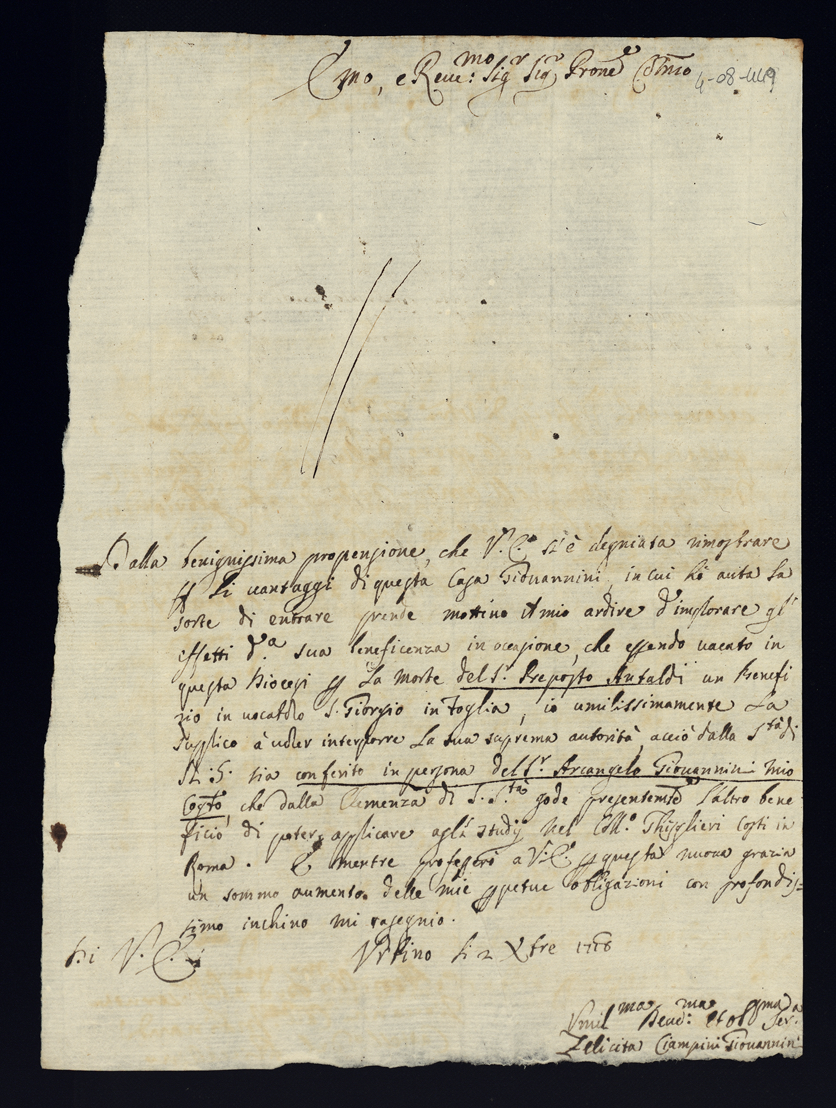 Emo, e Reue: mo Sigr Sigr Prone Colmo
4-08-449
Dalla benignissima propensione, che V. E. si è degniata rimostrare
p li uantaggi di questa Casa Giouannini, in cui hò auta la
sorte di entrare prende mottiuo il mio ardire d'implorare gl'
effetti d.a sua beneficenza in ocasione, che essendo uacato in
questa Diocesi p la morte del Sr. Preposto Antaldi un Benefi
zio in uocabolo S. Giorgio in Foglia, io umilissimamente La
supplico à uoler interporre La sua suprema autorità, acciò dalla S.tà di
N. S. sia conferito in persona del Sr. Arcangelo Giouannini mio
Cogto, che dalla Clemenza di S. S.tà gode presentemte l'altro bene
ficio di poter applicare agli studij nel Coll.o Ghislieri costì in
Roma. E mentre professerò a V. E. p questa nuova grazia
un sommo aumento delle mie ppetue obligazioni con profondis=
simo inchino mi rasegnio.
Di V. E.
Urbino li 2 Xbre
Vmil.ma Deue:ma et obgma Ser.a
Felicita Ciampini Giouannini